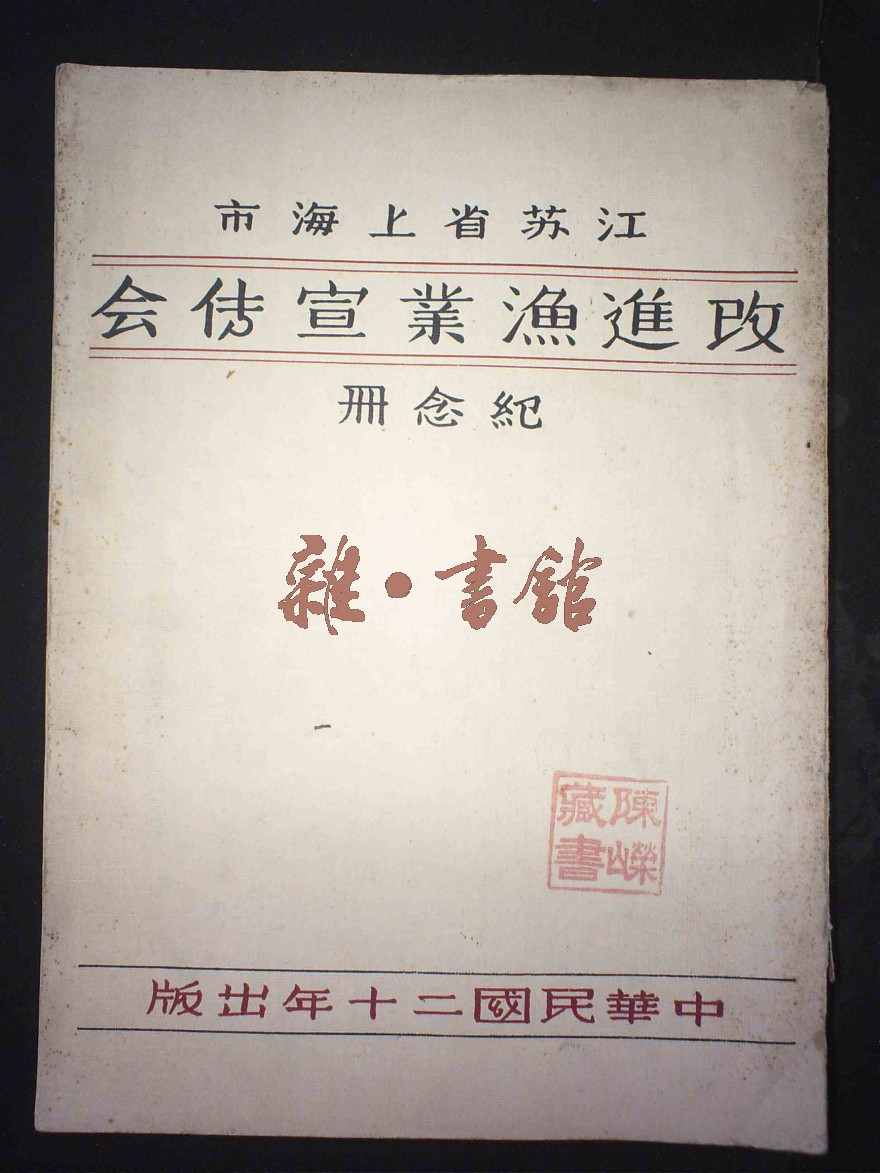 江苏省上海市
改進漁業宣传会
紀念冊
雜·書館
陳嶸
藏書
中華民國二十年出版